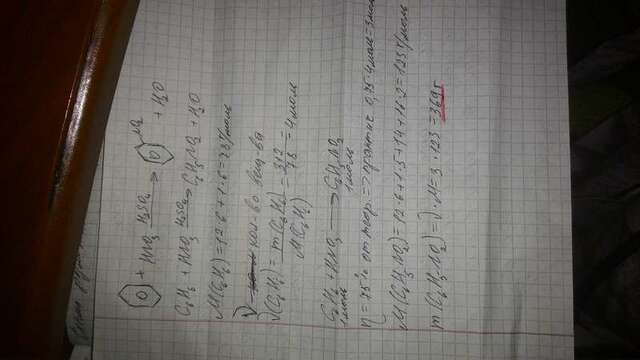 + HNO₃ H₂SO₄ → NO₂ + H₂O
C₆H₆ + HNO₃ H₂SO₄ → C₆H₅NO₂ + H₂O
M(C₆H₆) = 12·6+1·6=78г/моль
ν кол-во вещ-ва
ν(C₆H₆) = m(C₆H₆) / M(C₆H₆) = 312 / 78 = 4 моль
C₆H₆ + HNO₃ → C₆H₅NO₂
1моль 1моль
η = 75% от теор. => практич. 0,75·4моль=3моль
M(C₆H₅NO₂) = 12·6+1·5+14+16·2=123г/моль
m(C₆H₅NO₂) = ν·M=3·123=369г